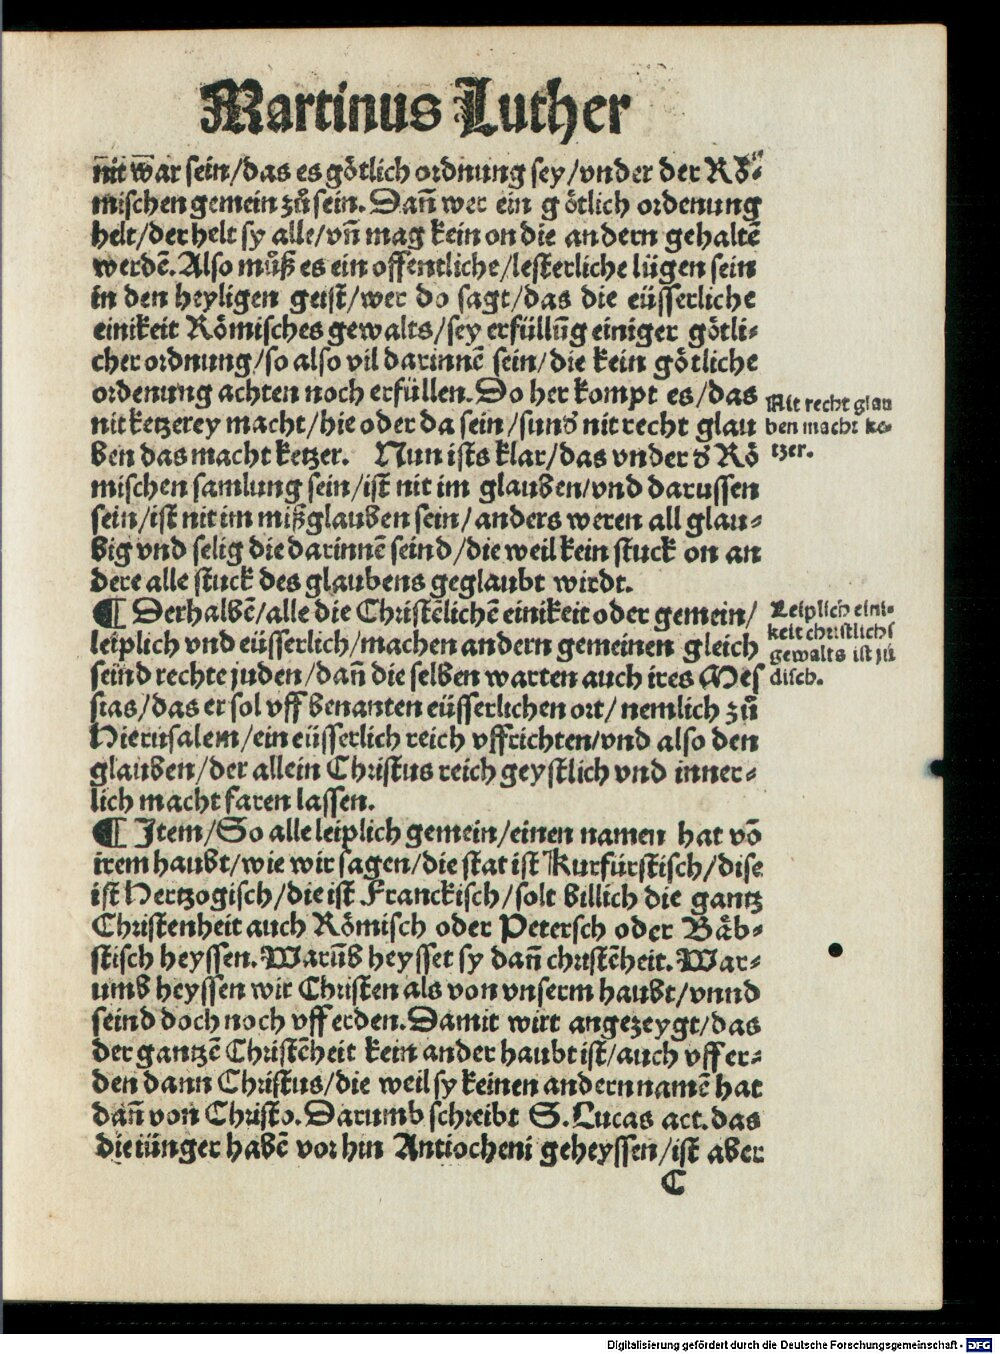 Martinus Luther
nit war sein/das es götlich ordnung sey/vnder der Rö⸗
mischen gemein zuͦ sein. Dañ wer ein götlich ordenung
helt/der helt sy alle/vñ mag kein on die andern gehaltē
werdē. Also muͦß es ein offentliche/lesterliche lügen sein
in den heyligen geist/wer do sagt/das die eüsserliche
einikeit Römisches gewalts/sey erfüllūg einiger götli⸗
cher ordnung/so also vil darinnē sein/die kein götliche
ordenung achten noch erfüllen. Do her kompt es/das
nit ketzerey macht/hie oder da sein/sund nit recht glau
ben das macht ketzer. Nun ists klar/das vnder d Rö
mischen samlung sein/ist nit im glauben/vnd darussen
sein/ist nit im mißglauben sein/anders weren all glau⸗
big vnd selig die darinnē seind/die weil kein stuck on an
dere alle stuck des glaubens geglaubt wirdt.
Nit recht glau
ben macht ke⸗
tzer.
¶ Derhalbē/alle die Christēlichē einikeit oder gemein/
leiplich vnd eüsserlich/machen andern gemeinen gleich
seind rechte juden/dañ die selben warten auch ires Mes
sias/das er sol vff benanten eüsserlichen ort/nemlich zuͦ
Hierusalem/ein eüsserlich reich vffrichten/vnd also den
glauben/der allein Christus reich geystlich vnd inner⸗
lich macht faren lassen.
Leiplich eini⸗
keit christlichs
gewalts ist jü
disch.
¶ Item/So alle leiplich gemein/einen namen hat vō
irem haubt/wie wir sagen/die stat ist Kurfürstisch/dise
ist Hertzogisch/die ist Franckisch/solt billich die gantz
Christenheit auch Römisch oder Petersch oder Bäb⸗
stisch heyssen. Warūb heysset sy dañ christēheit. War⸗
umb heyssen wir Christen als von vnserm haubt/vnnd
seind doch noch vff erden. Damit wirt angezeygt/das
der gantzē Christēheit kein ander haubt ist/auch vff er⸗
den dann Christus/die weil sy keinen andern namē hat
dañ von Christo. Darumb schreibt S. Lucas act. das
die iünger habē vor hin Antiocheni geheyssen/ist aber
C
Digitalisierung gefördert durch die Deutsche Forschungsgemeinschaft - DFG